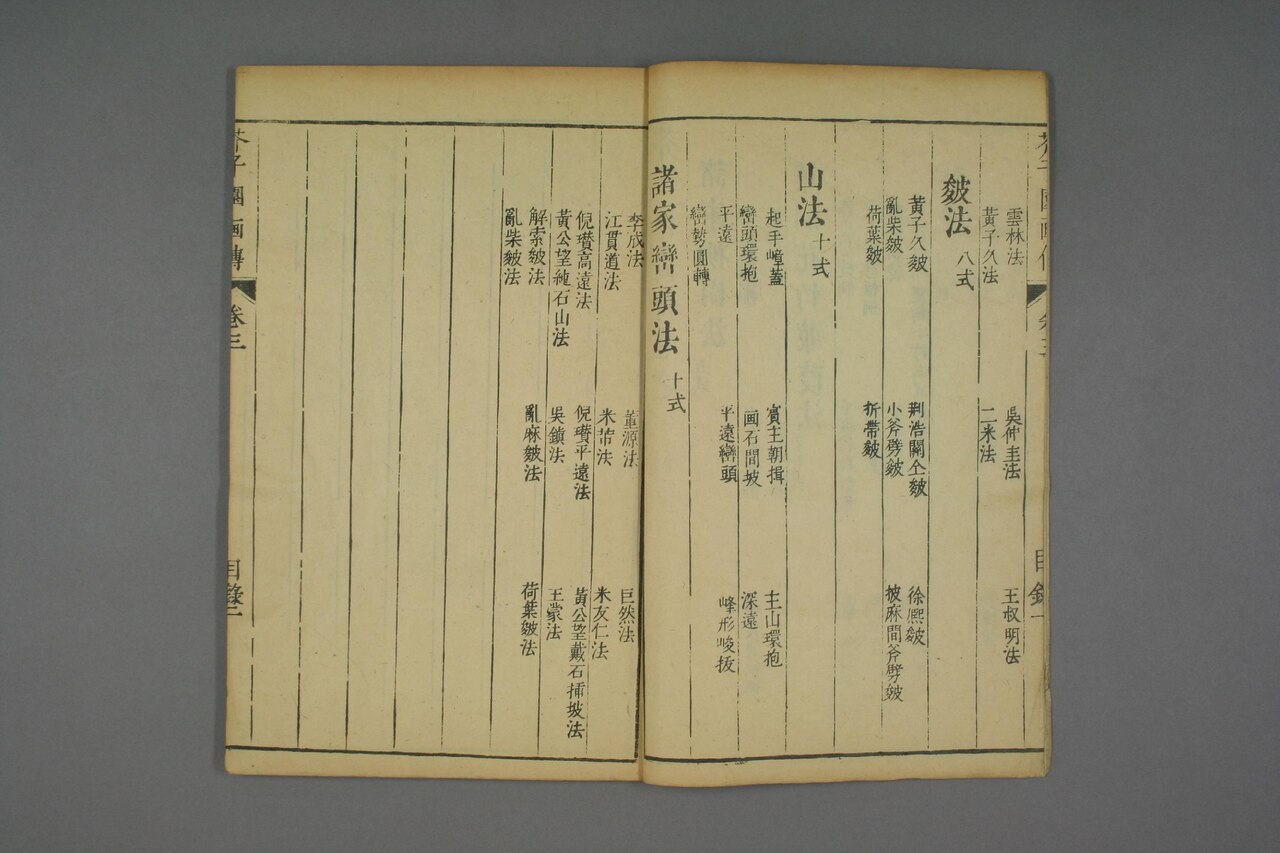 芥子園画傳 卷三 目錄一
雲林法 吳仲圭法 王叔明法
黃子久法 二米法
皴法 八式
黃子久皴 荆浩關仝皴 徐熙皴
亂柴皴 小斧劈皴 披麻間斧劈皴
荷葉皴 折帶皴
山法 十式
起手嶂蓋 賓主朝揖 主山環抱
巒頭環抱 画石間坡 深遠
平遠 平遠巒頭 峰形峻拔
巒勢圓轉
諸家巒頭法 十式
李成法 董源法 巨然法
江貫道法 米芾法 米友仁法
倪瓚高遠法 倪瓚平遠法 黃公望戴石揷坡法
黃公望純石山法 吳鎮法 王蒙法
解索皴法 亂麻皴法 荷葉皴法
亂柴皴法
芥子園画傳 卷三 目錄二